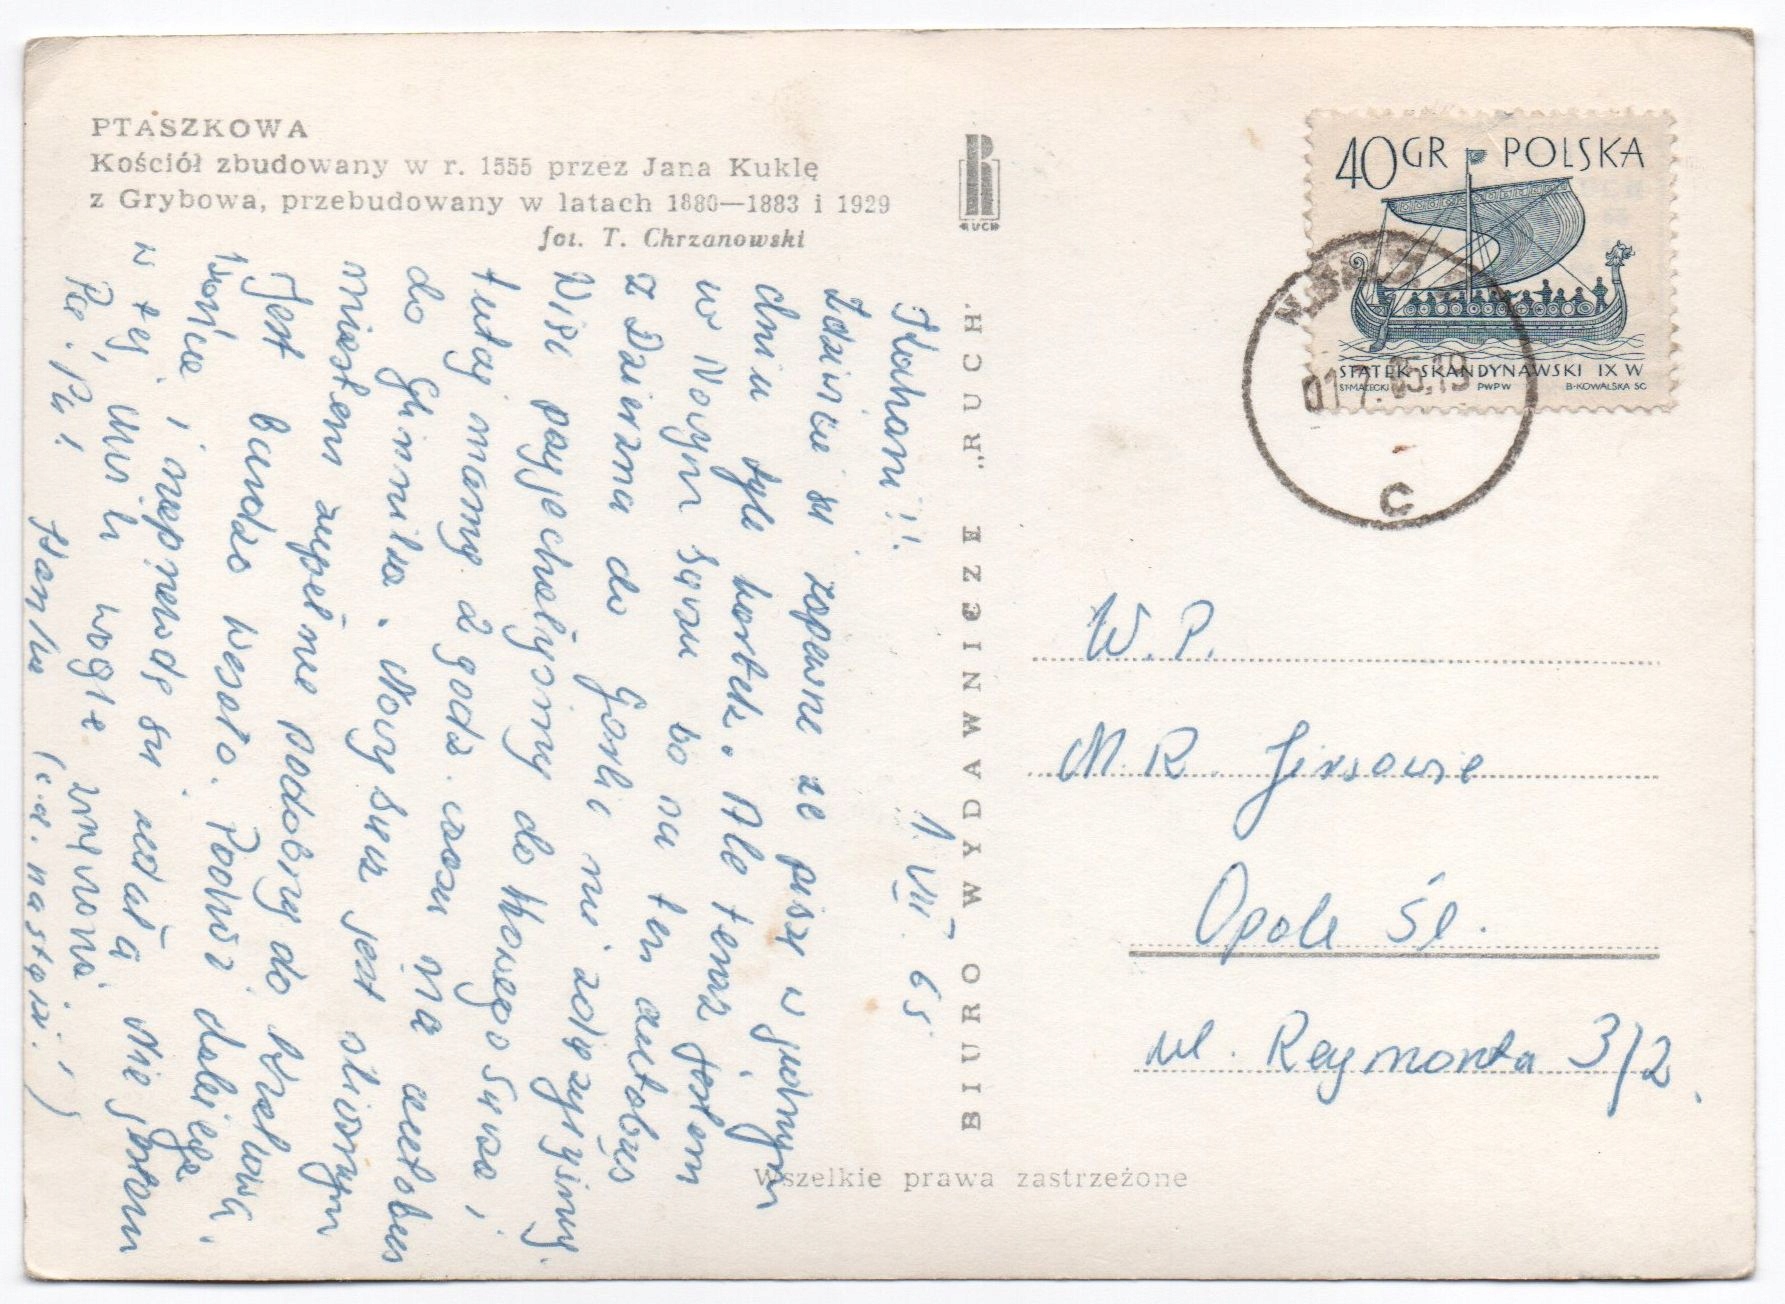 PTASZKOWA
Kościół zbudowany w r. 1555 przez Jana Kuklę
z Grybowa, przebudowany w latach 1880—1883 i 1929
fot. T. Chrzanowski
RUCH
40 GR POLSKA
STATEK SKANDYNAWSKI IX W
ST·MAŁECKI PWPW B·KOWALSKA SC
01 7. 65.19
C
BIURO WYDAWNICZE „RUCH"
Wszelkie prawa zastrzeżone
1. VII. 65
Kochani!!
Zdziwicie się zapewne że piszę w jednym
dniu tyle kartek. Ale teraz jestem
w Nowym Sączu bo na ten autobus
z Dzierzna do Gorlic nie zdążyliśmy.
Więc pojechaliśmy do Nowego Sącza i
tutaj mamy 2 godz. czasu na autobus
do Glinnika. Nowy Sącz jest ślicznym
miastem zupełnie podobny do Krakowa.
Jest bardzo wesoło. Podróż dalej
i naprawdę się udała. Nie jestem
w tej chwili wogle zmęczona
Pa! Pa!
Hanka (c.d. nastąpi!)
W. P.
M. R.
Opole Śl.
ul. Reymonta 3/2